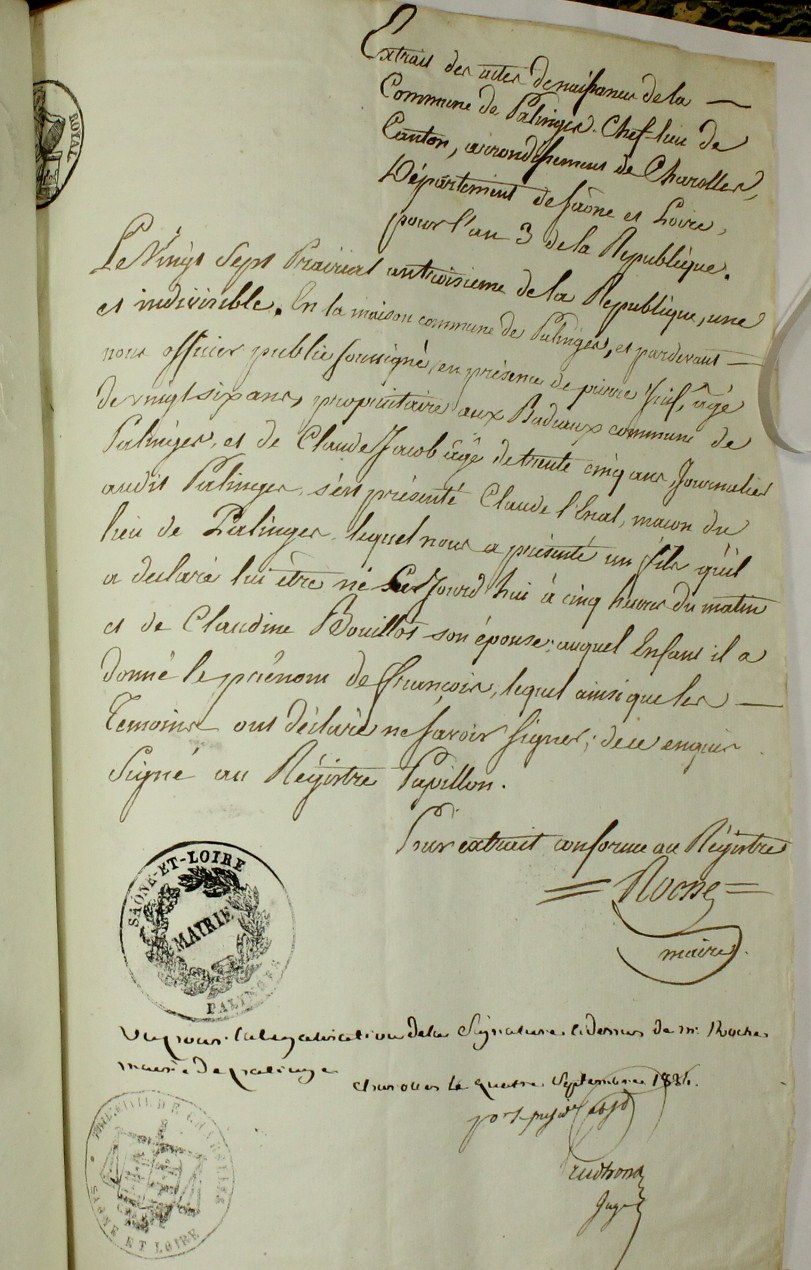 ROYAL
Extrait des actes de naissance de la
Commune de Palinges. Chef-lieu de
Canton, arrondissement de Charolles,
Département de Saône et Loire,
pour l'an 3 de la République.
Le Vingt Sept Prairial an troisieme de la République, une
et indivisible. En la maison commune de Palinges, et pardevant
nous officier public soussigné, en présence de pierre âgé
de vingt six ans, propriétaire aux Badeaux commune de
Palinges, et de Claude Jacob âgé de trente cinq ans Journalier
audit Palinges, s'est présenté Claude macon du
lieu de Palinges, lequel nous a présenté un fils qu'il
a déclaré lui être né Ce Jourd'hui à cinq heures du matin
et de Claudine Bouillot son épouse; auquel Enfant il a
donné le prénom de françois, lequel ainsi que les
Temoins ont déclaré ne savoir signer; de ce enquis
Signé au Régistre Papillon.
Pour extrait conforme au Régistre
Roche
maire.
SAONE-ET-LOIRE
MAIRIE
PALINGES
Vu pour la légalisation de la Signature ci dessus de mr. Roche
maire de palinge
charolles le quatre Septembre
Juge
SAONE ET LOIRE